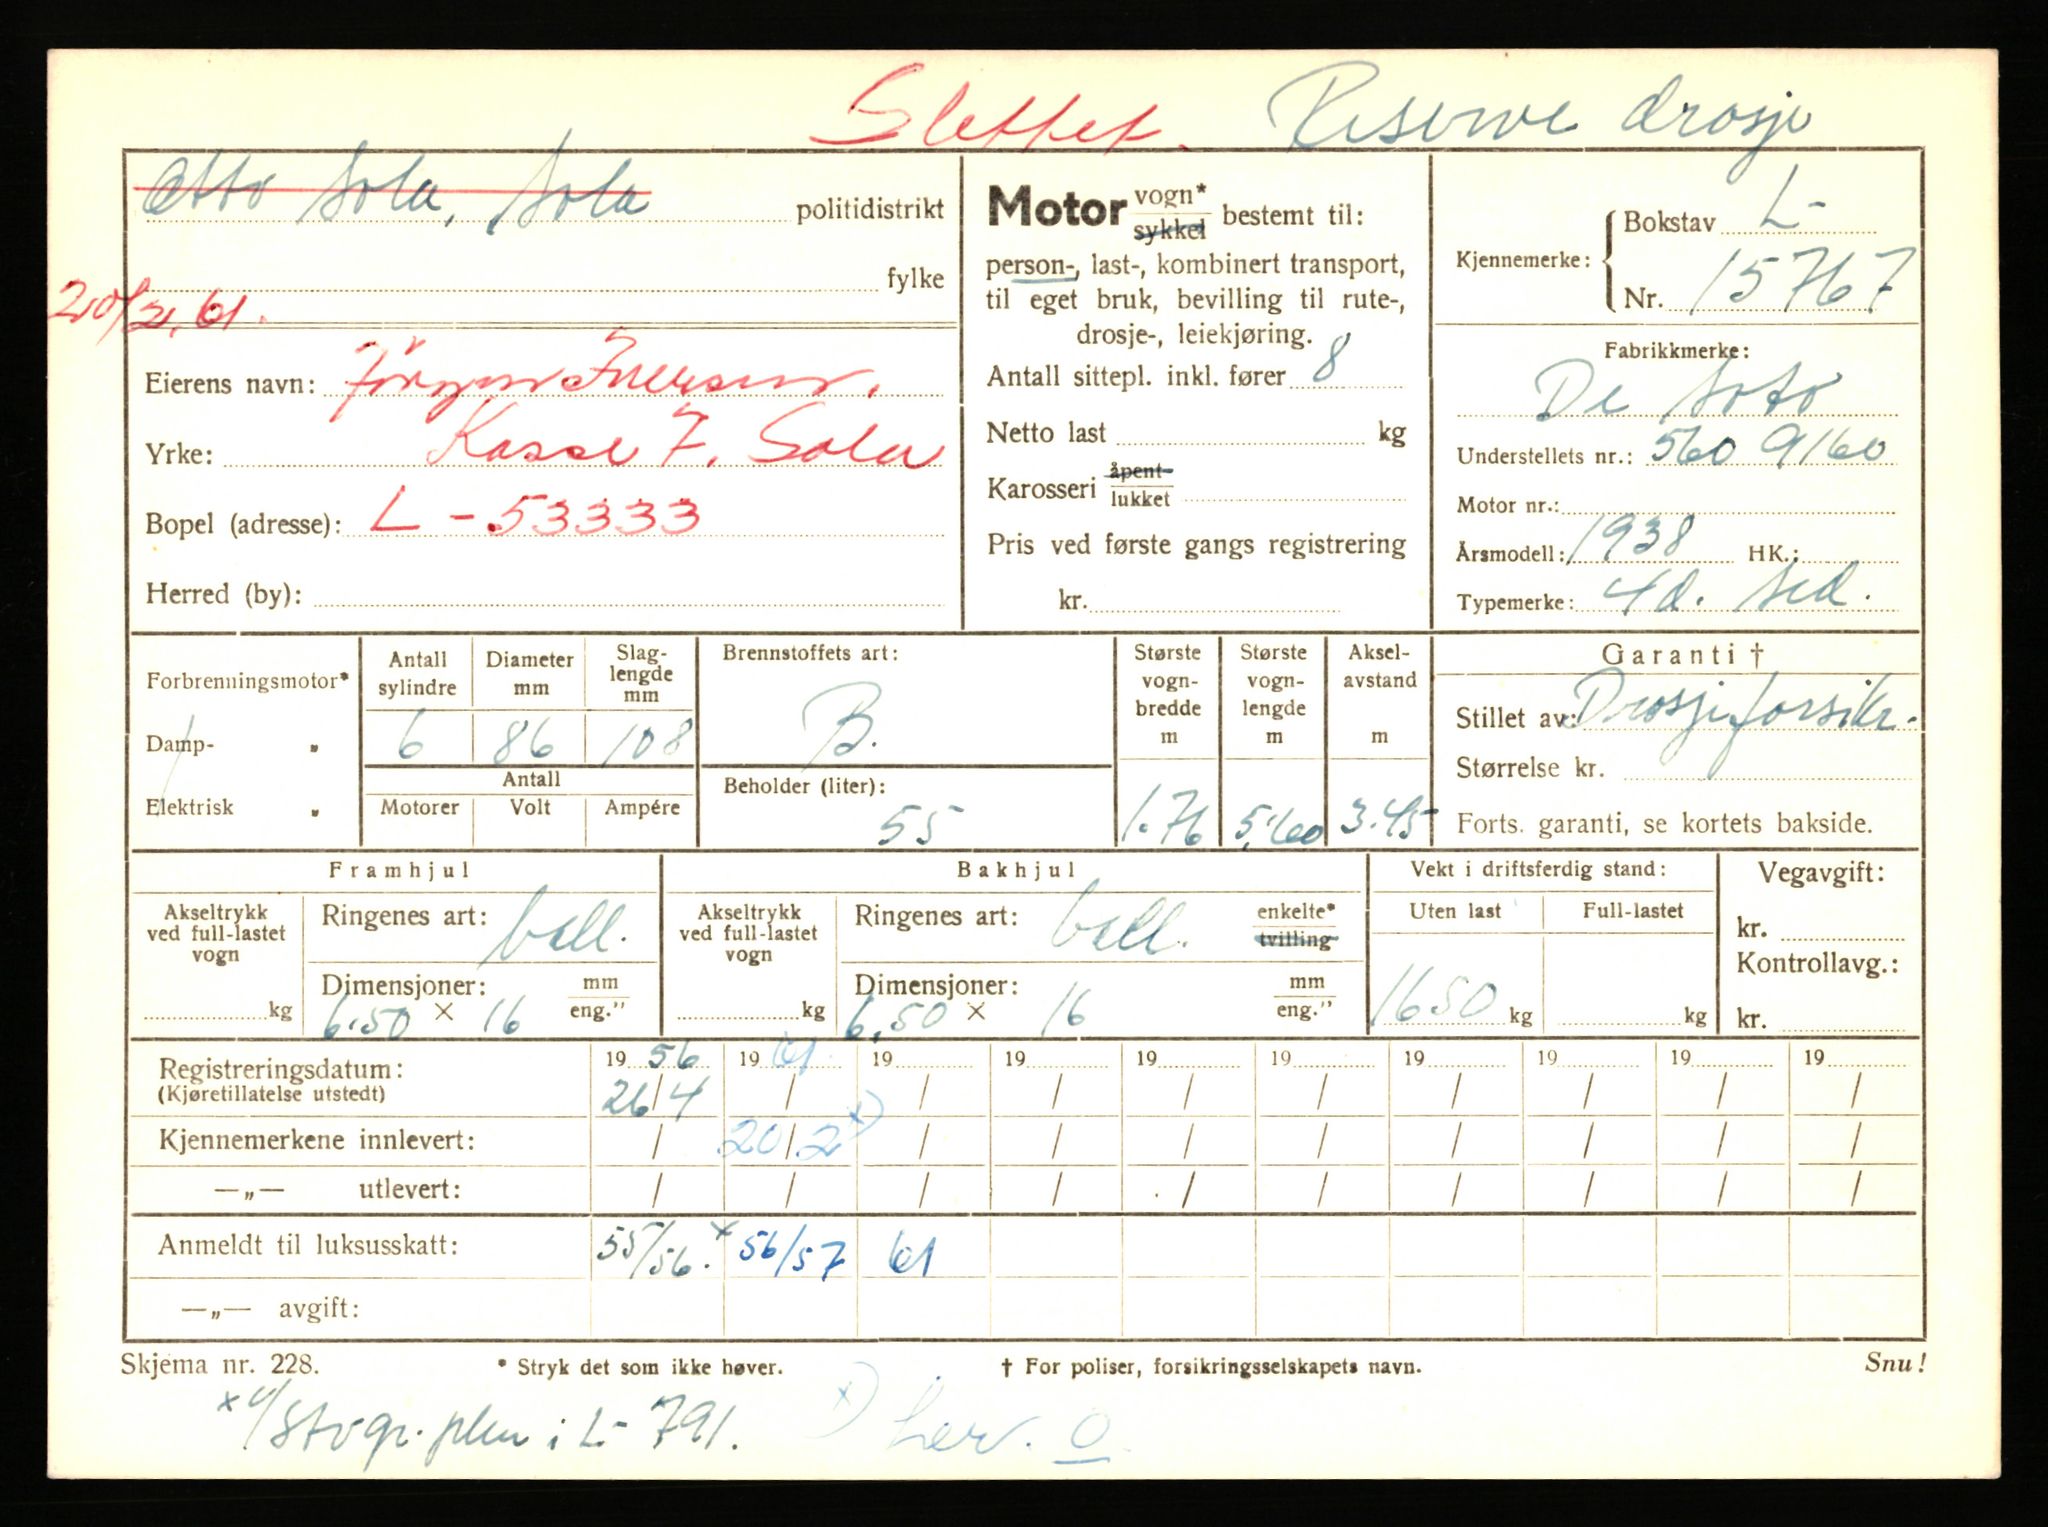 Slettet. Reserve drosje
Otto Sola, Sola politidistrikt
fylke
20/2.61.
Eierens navn: Jörgen Iversen,
Yrke: Kasse 7. Sola
Bopel (adresse): L - 53333
Herred (by):
Motor vogn* sykkel bestemt til:
person-, last-, kombinert transport,
til eget bruk, bevilling til rute-,
drosje-, leiekjøring.
Antall sittepl. inkl. fører 8
Netto last kg
Karosseri åpent lukket
Pris ved første gangs registrering
kr.
Kjennemerke: Bokstav L-
Nr. 15767
Fabrikkmerke:
De Soto
Understellets nr.: 560 9160
Motor nr.:
Årsmodell: 1938 HK.:
Typemerke: 4d. sed.
Forbrenningsmotor*
Damp- "
Elektrisk "
Antall sylindre Diameter mm Slag-lengde mm
6 86 108
Antall
Motorer Volt Ampére
Brennstoffets art:
B.
Beholder (liter):
55
Største vogn-bredde m
1.76
Største vogn-lengde m
5.60
Aksel-avstand m
3.45
Garanti †
Stillet av: Drosjeforsikr.
Størrelse kr.
Forts. garanti, se kortets bakside.
Framhjul
Akseltrykk ved full-lastet vogn
kg
Ringenes art: ball.
Dimensjoner: mm eng."
6.50 × 16
Bakhjul
Akseltrykk ved full-lastet vogn
kg
Ringenes art: ball. enkelte* tvilling
Dimensjoner: mm eng."
6.50 × 16
Vekt i driftsferdig stand:
Uten last Full-lastet
1650 kg kg
Vegavgift:
kr.
Kontrollavg.:
kr.
Registreringsdatum: 19 56 19 61 19 19 19 19 19 19 19 19
(Kjøretillatelse utstedt) 26/4 / / / / / / / / /
Kjennemerkene innlevert: / 20/2 x) / / / / / / / /
—„— utlevert: / / / / / / / / / /
Anmeldt til luksusskatt: 55/56. x 56/57 61
—„— avgift:
Skjema nr. 228. * Stryk det som ikke høver. † For poliser, forsikringsselskapets navn. Snu!
i L- 791. x)